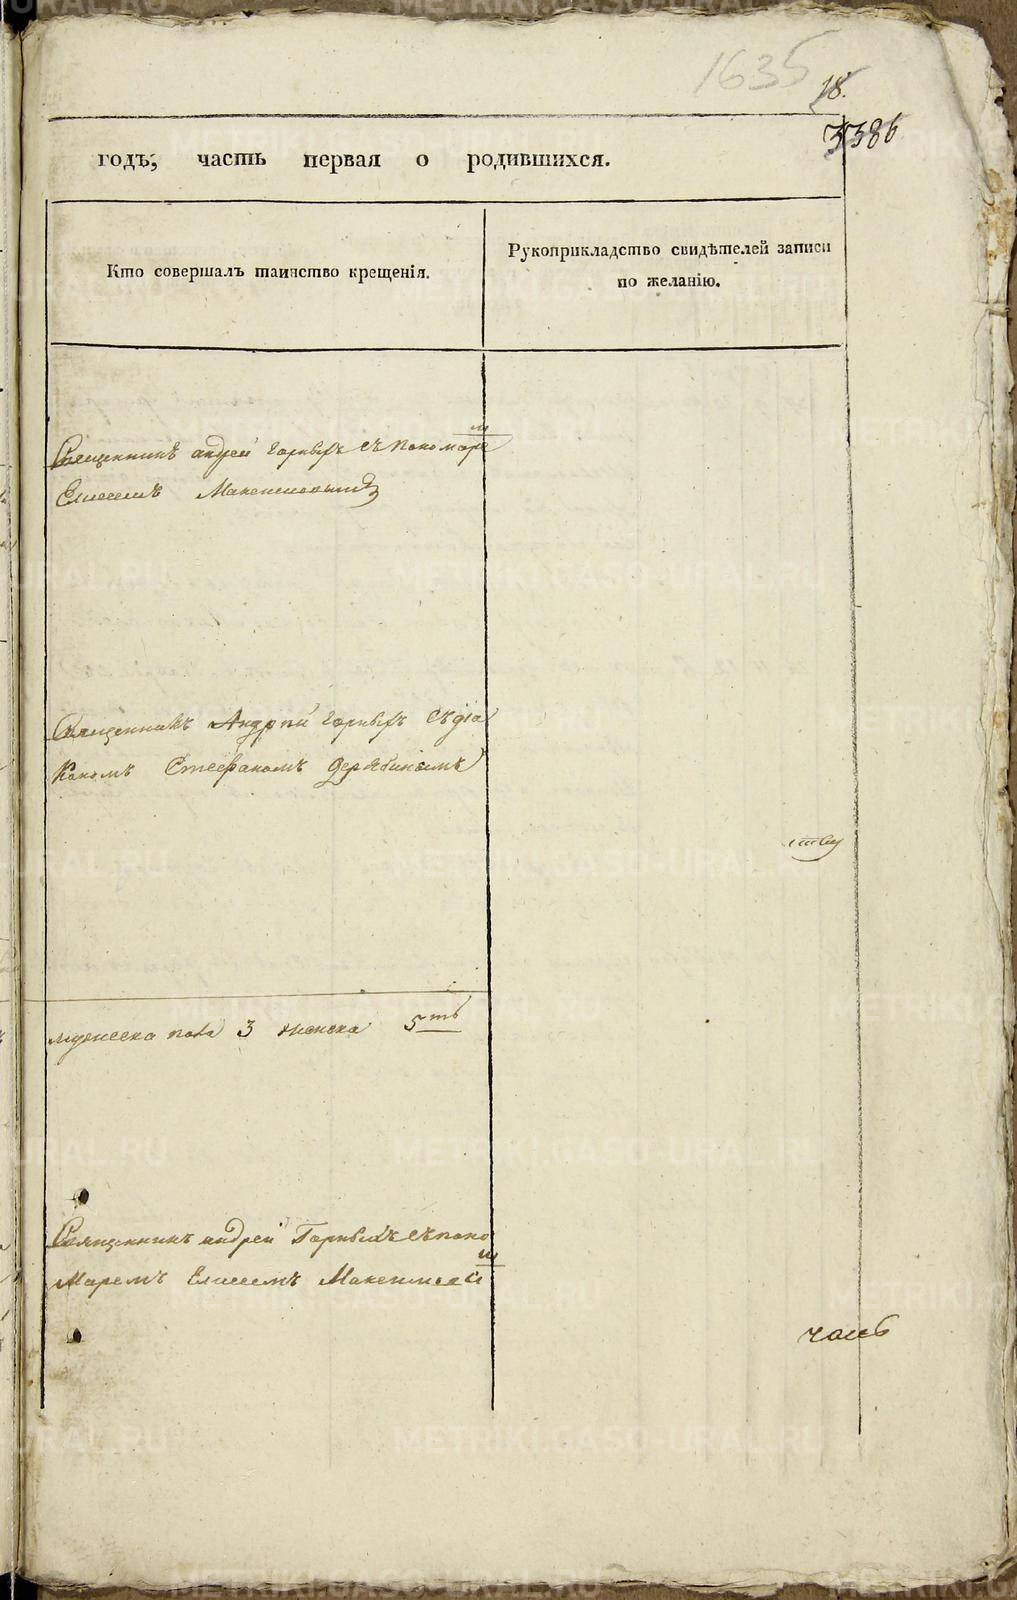 1635
18.
3386
годъ, часть первая о родившихся.
Кто совершалъ таинство крещенія.
Рукоприкладство свидѣтелей записи
по желанію.
Священникъ андрей Горныхъ съ пономаре
м
Елисеемъ Максимовымъ
Священникъ Андрей Горныхъ съ діа
кономъ Стефаномъ Дерябинымъ
мужеска пола 3 женска 5ть
Священникъ андрей Горныхъ съ поно
маремъ Елисеемъ Максимовы
м
часть
METRIKI.GASO-URAL.RU